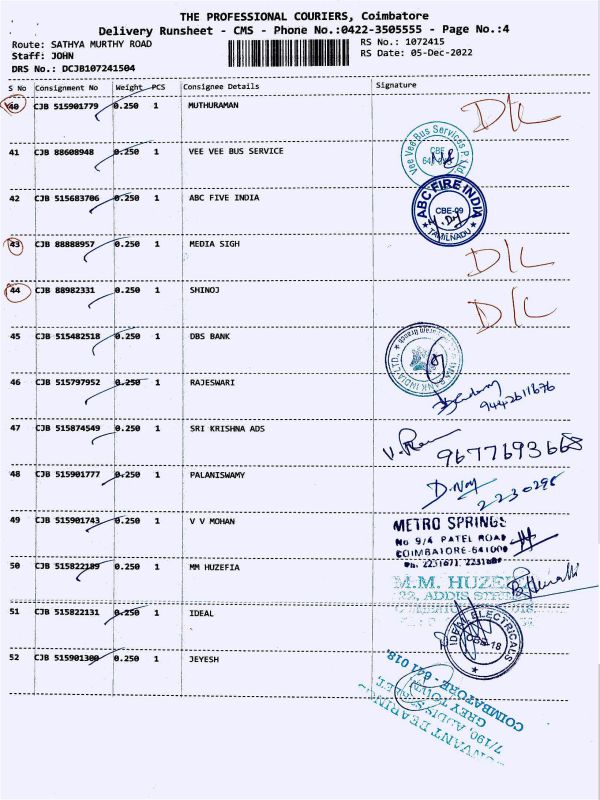 THE PROFESSIONAL COURIERS, Coimbatore
Delivery Runsheet - CMS - Phone No.:0422-3505555 - Page No.:4
Route: SATHYA MURTHY ROAD
RS No.: 1072415
Staff: JOHN
RS Date: 05-Dec-2022
DRS No.: DCJB107241504
S No Consignment No Weight PCS Consignee Details Signature
40 CJB 515901779 0.250 1 MUTHURAMAN D/L
41 CJB 88608948 0.250 1 VEE VEE BUS SERVICE
Vee Vee Bus Services P. Ltd
CBE
42 CJB 515683706 0.250 1 ABC FIVE INDIA
ABC FIRE INDIA
CBE-09
TAMILNADU
43 CJB 88888957 0.250 1 MEDIA SIGH D/L
44 CJB 88982331 0.250 1 SHINOJ D/L
45 CJB 515482518 0.250 1 DBS BANK
BANK INDIA LTD
46 CJB 515797952 0.250 1 RAJESWARI
9442611676
47 CJB 515874549 0.250 1 SRI KRISHNA ADS
9677693668
48 CJB 515901777 0.250 1 PALANISWAMY
2230298
49 CJB 515901743 0.250 1 V V MOHAN
METRO SPRINGS
No 9/4 PATEL ROAD
COIMBATORE-641009
Ph. 2231671
50 CJB 515822189 0.250 1 MM HUZEFIA
M.M. HUZEF
22, ADDIS STREET
51 CJB 515822131 0.250 1 IDEAL
IDEAL ELECTRICALS
CBE-18
52 CJB 515901300 0.250 1 JEYESH
BEARING
7/190, ADDIS STREET,
GREY TOWN
COIMBATORE - 641 018.